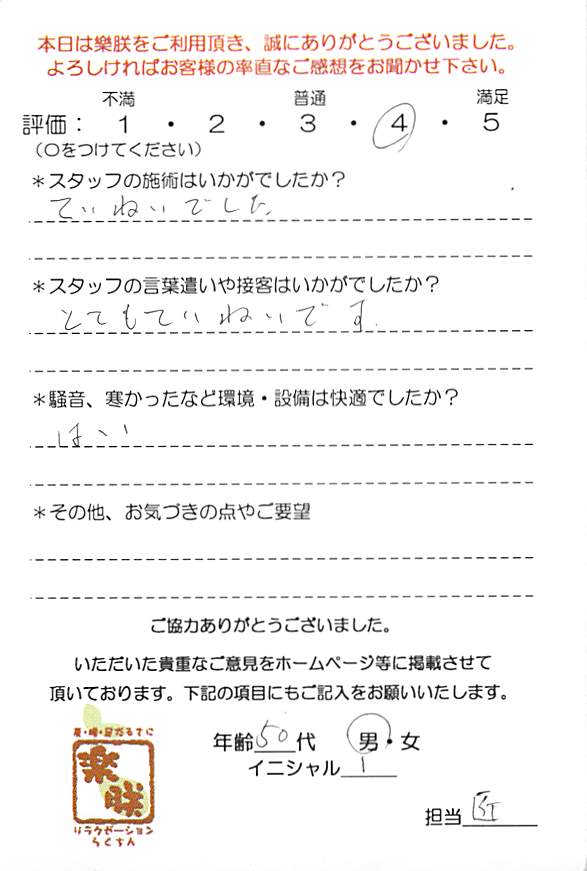 本日は樂朕をご利用頂き、誠にありがとうございました。
よろしければお客様の率直なご感想をお聞かせ下さい。
不満 普通 満足
評価： 1 ・ 2 ・ 3 ・ 4 ・ 5
（○をつけてください）
＊スタッフの施術はいかがでしたか？
ていねいでした
＊スタッフの言葉遣いや接客はいかがでしたか？
とてもていねいです.
＊騒音、寒かったなど環境・設備は快適でしたか？
はい
＊その他、お気づきの点やご要望
ご協力ありがとうございました。
いただいた貴重なご意見をホームページ等に掲載させて
頂いております。下記の項目にもご記入をお願いいたします。
年齢50代 男・女
イニシャル I
担当
樂朕
リラクゼーション
らくちん